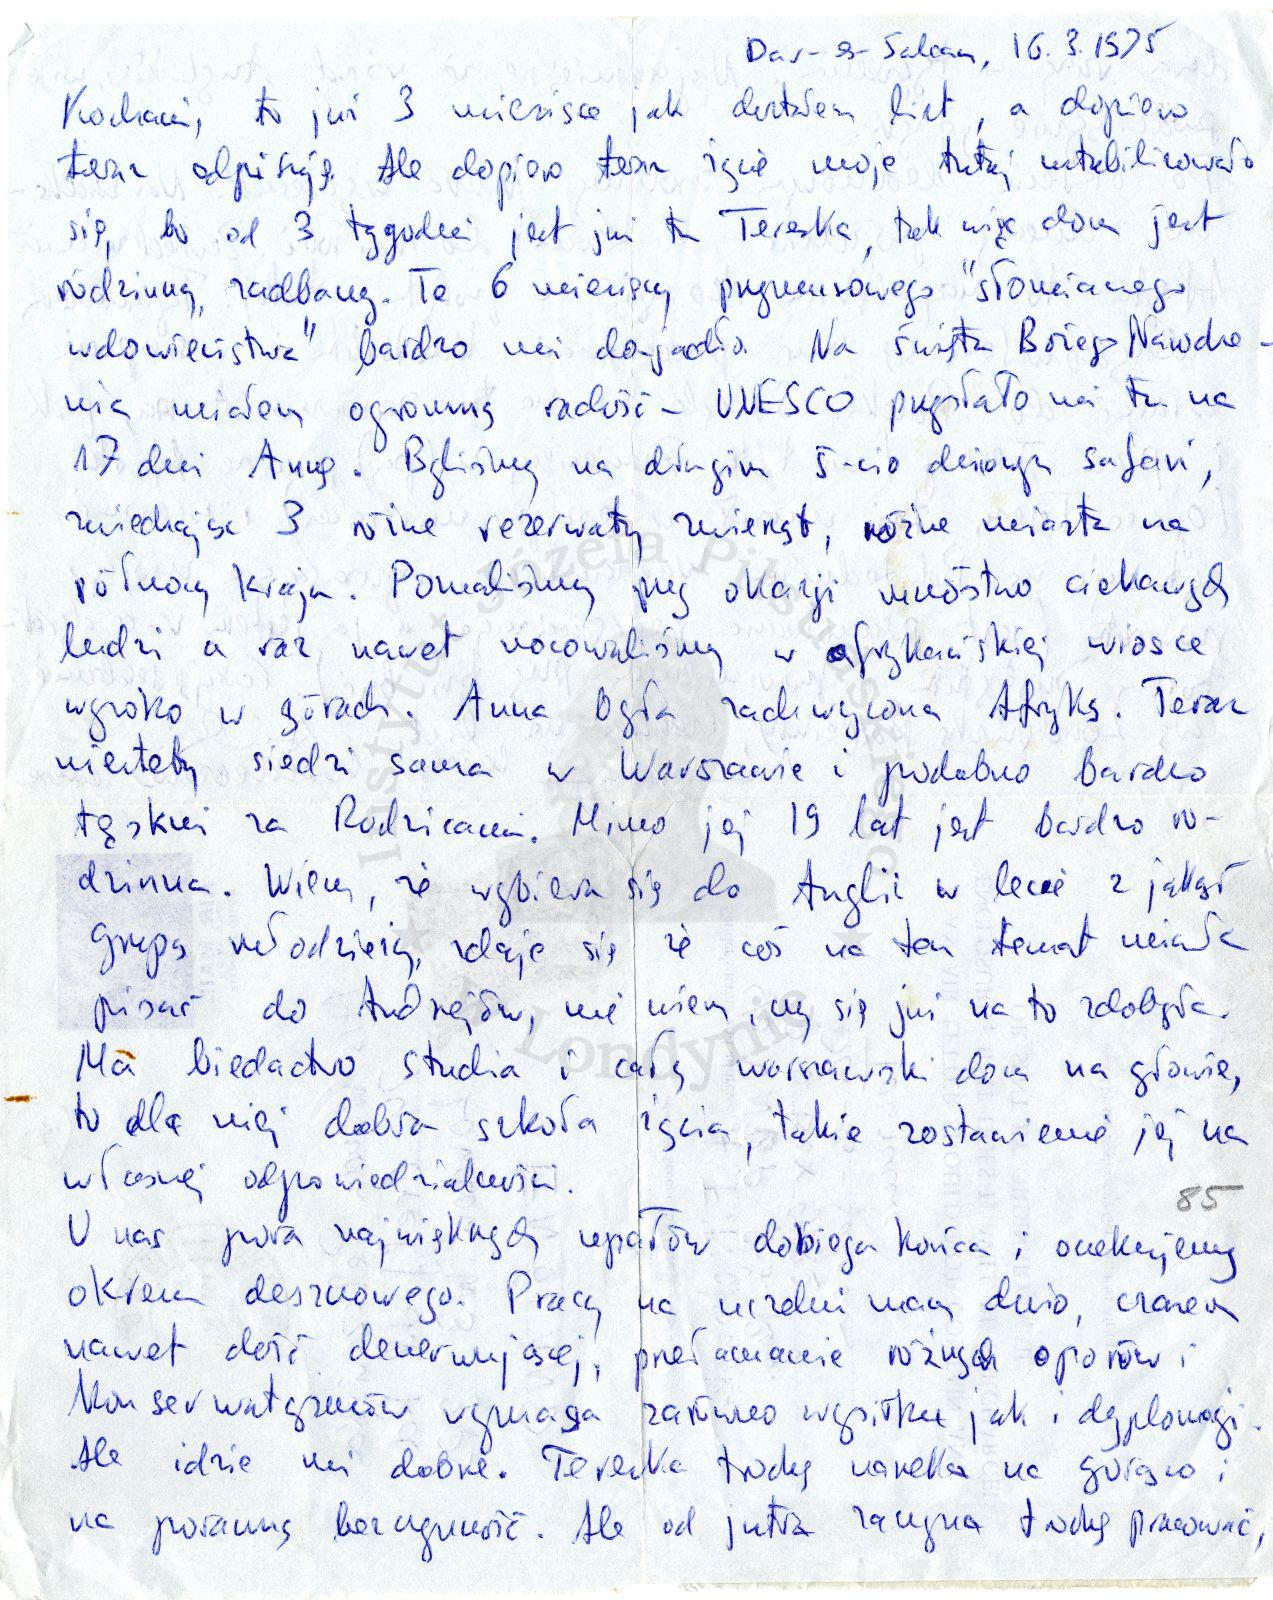 Dar-es-Salam, 16.3.1975
Kochani, to już 3 miesiące jak dostałem list, a dopiero
teraz odpisuję. Ale dopiero teraz życie moje tutaj ustabilizowało
się, bo od 3 tygodni jest już tu Tereska, tak więc dom jest
rodzinny, zadbany. Te 6 miesięcy przymusowego "słomianego
wdowieństwa" bardzo mi dojadło. Na święta Bożego Narodze-
nia miałem ogromną radość - UNESCO przysłało mi tu na
17 dni Annę. Byliśmy na długim 5-cio dniowym safari,
zwiedzając 3 różne rezerwaty zwierząt, różne miasta na
północy kraju. Poznaliśmy przy okazji mnóstwo ciekawych
ludzi a raz nawet nocowaliśmy w afrykańskiej wiosce
wysoko w górach. Anna była zachwycona Afryką. Teraz
niestety siedzi sama w Warszawie i podobno bardzo
tęskni za Rodzicami. Mimo jej 19 lat jest bardzo ro-
dzinna. Wiem, że wybiera się do Anglii w lecie z jakąś
grupą młodzieży, zdaje się że coś na ten temat miała
pisać do Andrzejów, nie wiem, czy się już na to zdobyła.
Ma biedactwo studia i cały warszawski dom na głowie,
to dla niej dobra szkoła życia, takie zostawienie jej na
własnej odpowiedzialności.
85
U nas pora największych upałów dobiega końca i oczekujemy
okresu deszczowego. Pracy na uczelni mam dużo, czasem
nawet dość denerwującej, przełamanie różnych oporów i
konserwatyzmów wymaga zarówno wysiłku jak i dyplomacji.
Ale idzie mi dobrze. Tereska trochę narzeka na gorąco i
na poranną bezczynność. Ale od jutra zaczyna trochę pracować,
Instytut Józefa Piłsudskiego
w Londynie